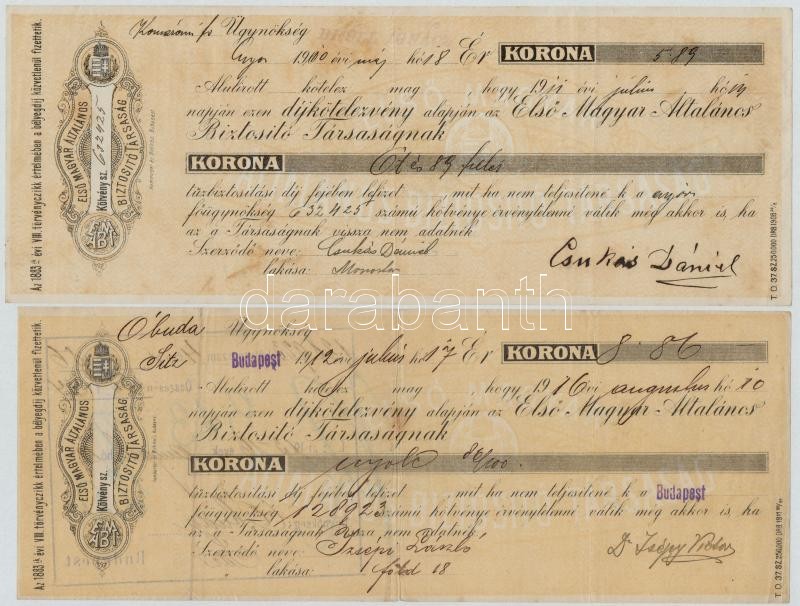 Az 1883ik évi VIII. törvényczikk értelmében a bélyegdíj közvetlenül fizettetik.
ELSŐ MAGYAR ÁLTALÁNOS
BIZTOSITÓ TÁRSASÁG
Kötvény sz. 632425
EMÁBT
Komáromi fő Ügynökség
Győr 1910 évi máj hó 18 Ér KORONA 5·89
Alulirott kötelez mag , hogy 1911 évi julius hó 14
napján ezen díjkötelezvény alapján az Első Magyar Általános
Biztositó Társaságnak
KORONA Öt és 89 fillér
tüzbiztositási dij fejében lefizet , mit ha nem teljesitené k a győri
főügynökség 632425 számú kötvénye érvénytelenné válik még akkor is, ha
az a Társaságnak vissza nem adatnék
Szerződő neve: Csukás Dániel
lakása: Monostor
Csukás Dániel
T. O. 37. SZ. 250.000
darabanth
Az 1883ik évi VIII. törvényczikk értelmében a bélyegdíj közvetlenül fizettetik.
ELSŐ MAGYAR ÁLTALÁNOS
BIZTOSITÓ TÁRSASÁG
Kötvény sz.
EMÁBT
Óbuda Ügynökség
Budapest 1912 évi julius hó 17 Ér KORONA 8·86
Alulirott kötelez mag , hogy 1916 évi augusztus hó
napján ezen díjkötelezvény alapján az Első Magyar Általános
Biztositó Társaságnak
KORONA nyolc 86/100
tüzbiztositási dij fejében lefizet , mit ha nem teljesitené k a Budapest
főügynökség 128923 számú kötvénye érvénytelenné válik még akkor is, ha
az a Társaságnak vissza nem adatnék
Szerződő neve: László
lakása: föld 18
Dr
T. O. 37. SZ. 250.000
Budapest